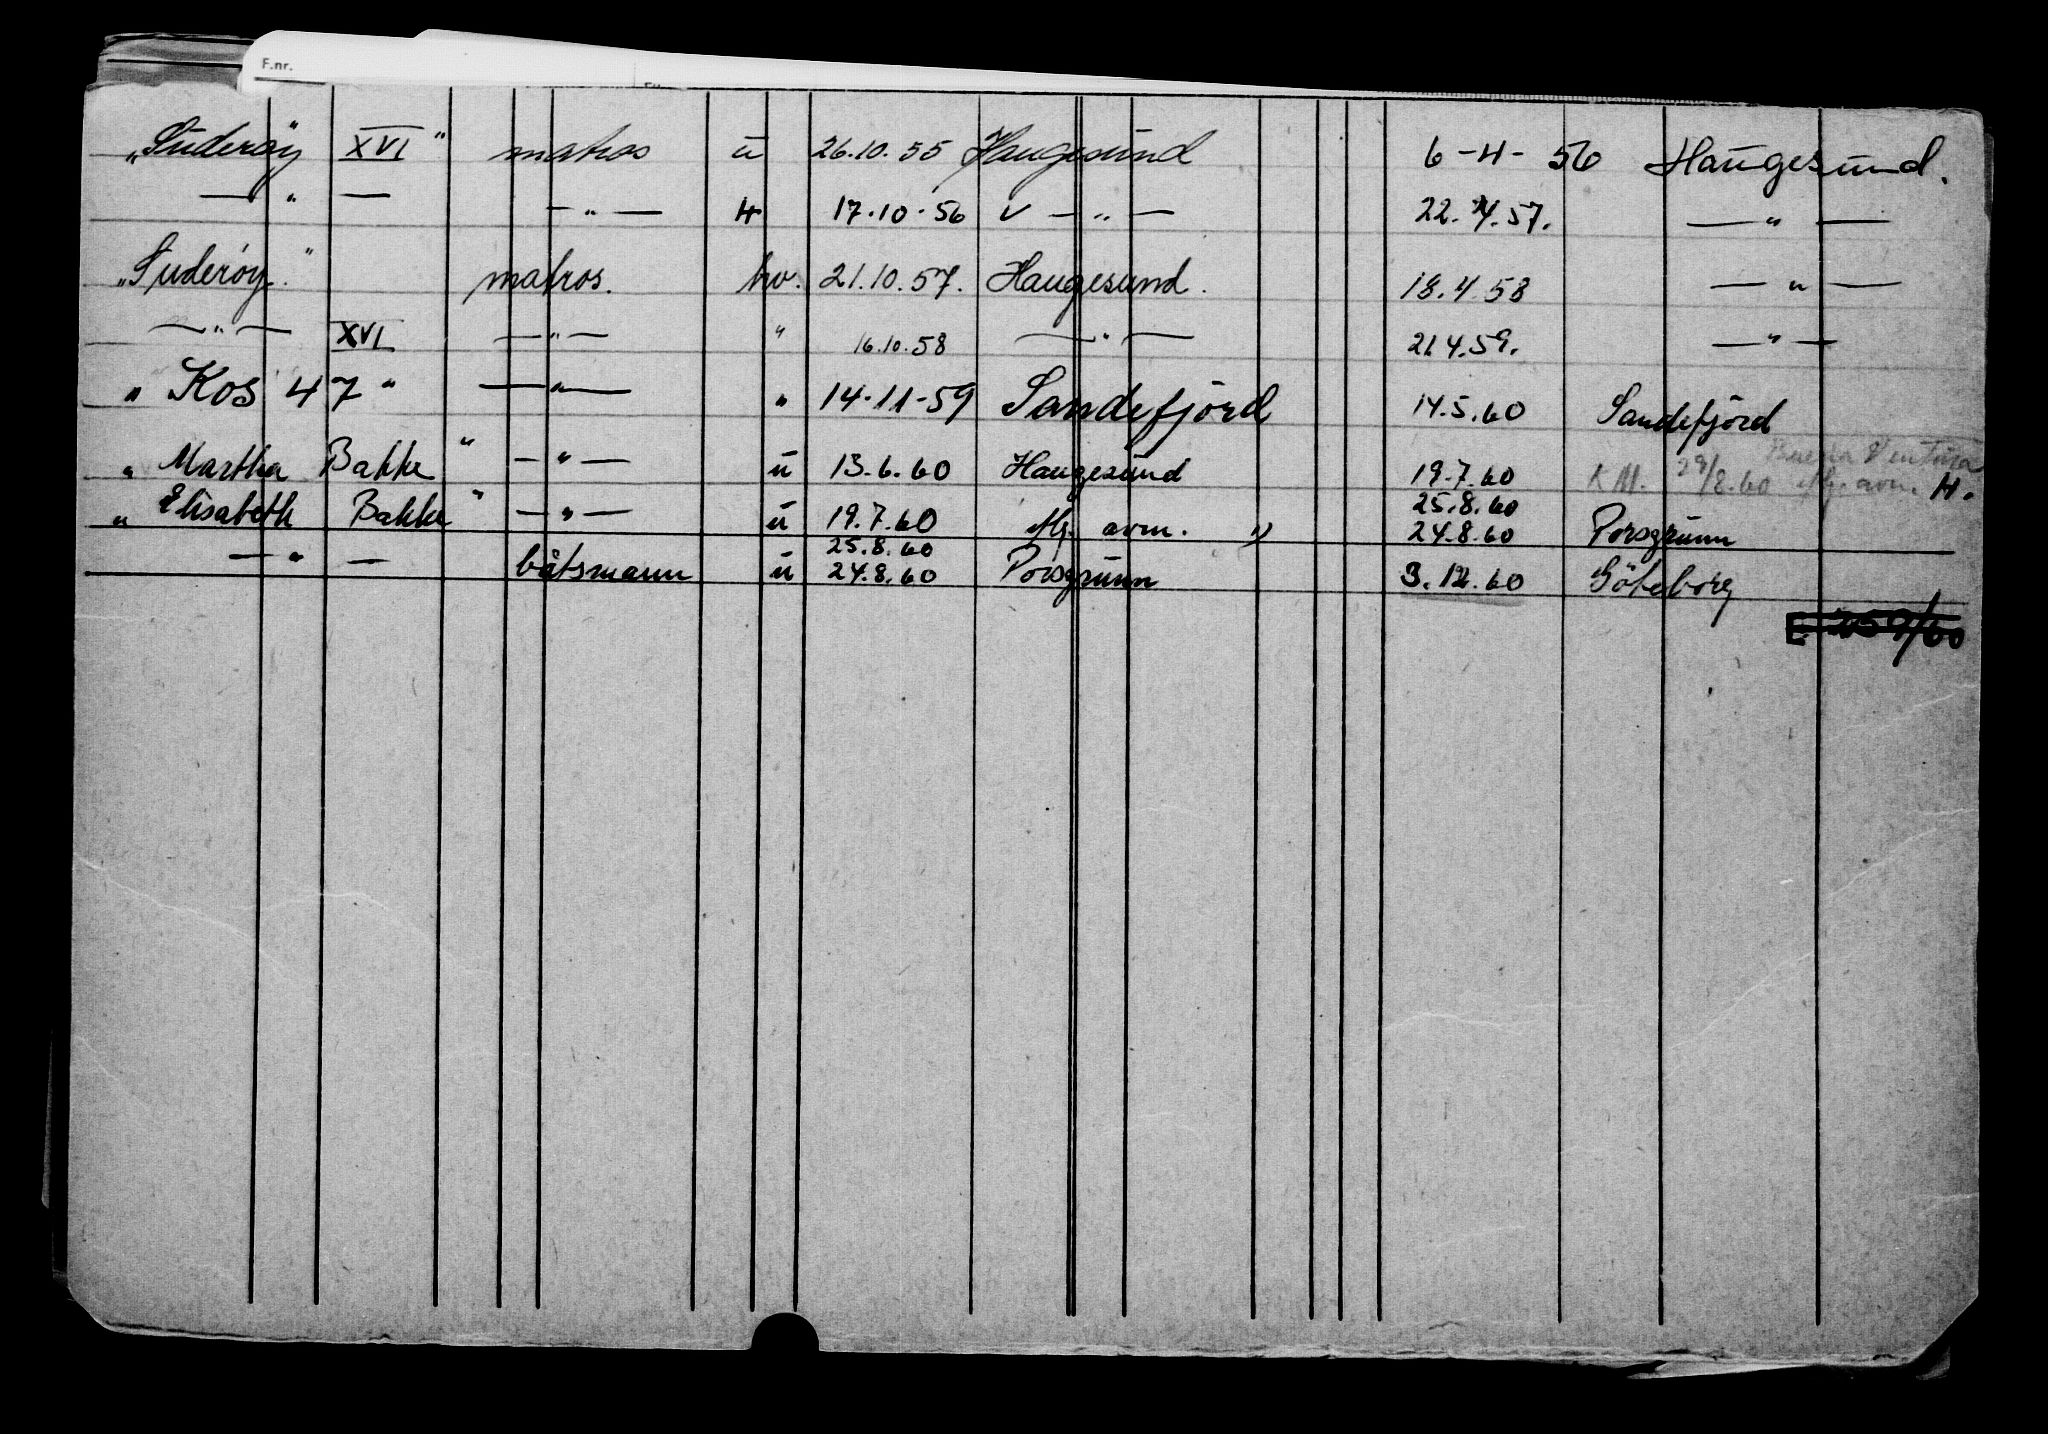 F.nr.
„Suderøy XVI" matros u 26.10.55 Haugesund 6-4-56 Haugesund.
— " — — " — H 17.10.56 — " — 22.4.57. — " —
„Suderøy." matros. hv. 21.10.57. Haugesund. 18.4.58 — " —
— " — XVI — " — " 16.10.58 — " — 21.4.59. — " —
„Kos 47" — " — " 14-11-59 Sandefjord 14.5.60 Sandefjord
Buena Ventura
„Martha Bakke" — " — u 13.6.60 Haugesund 19.7.60 K.M. 29/8.60 Mg. avm. H.
25.8.60
„Elisabeth Bakke" — " — u 19.7.60 Mg. avm. " 24.8.60 Porsgrunn
25.8.60
— " — båtsmann u 24.8.60 Porsgrunn 3.12.60 Göteborg